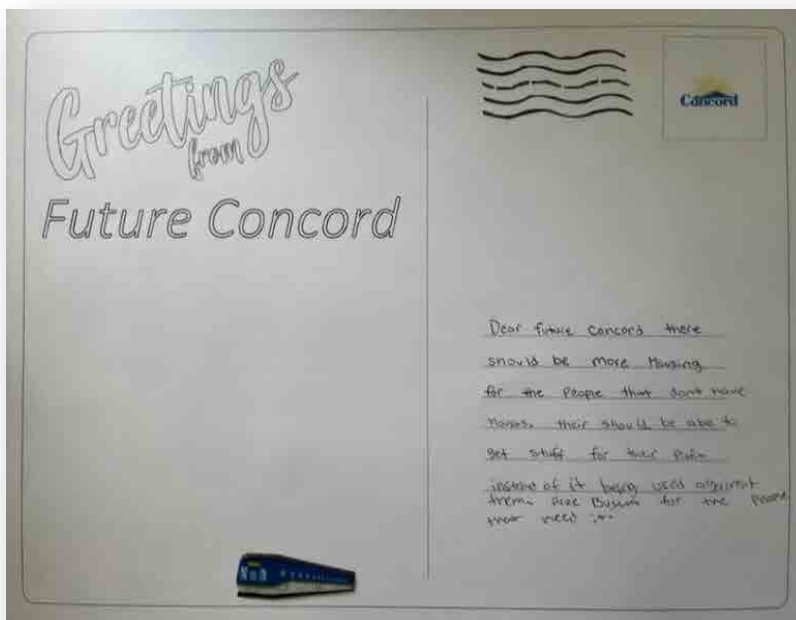 Greetings
from
Future Concord
Concord
Dear future Concord there
should be more Housing
for the People that dont have
Houses. their should be abe to
get stuff for their
instead of it being used
them. Free for the
that need it.